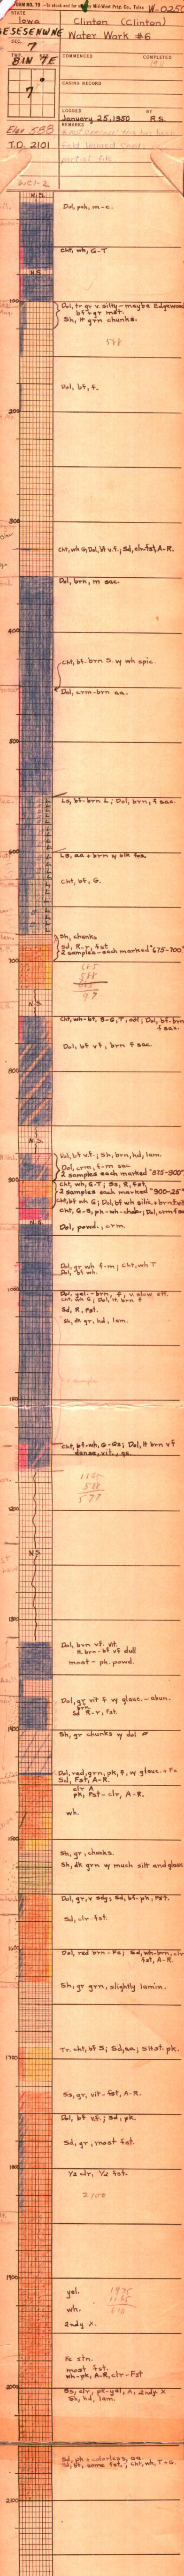 FORM NO. 79
Mid-West Ptg. Co., Tulsa
W-0250
STATE
Iowa
Clinton (Clinton)
SESESENWNE
Water Work #6
SEC.
7
COMMENCED
COMPLETED
81N 7E
CASING RECORD
7
LOGGED
BY
January 25, 1950
R.S.
REMARKS
Elev 588
T.D. 2101
N.S.
Dol, pnk, m-c.
Cht, wh, G-T
N.S.
100
Dol, tr gr v silty - maybe Edgewood
bf + gr mot.
Sh, lt grn chunks.
588
Dol, bf, f.
200
300
Cht, wh G; Dol, bf v.f.; Sd, cln fst, A-R.
Dol, brn, m sac.
400
Cht, bf-brn S. w wh spic.
Dol, crm-brn sa.
500
Ls, bf-brn L; Dol, brn, f sac.
600
Ls, aa + brn w blk fos.
Cht, bf, G.
Sh, chunks
Sd, R-r, fst
2 samples - each marked "675-700"
700
N.S.
Cht, wh-bf, S-G, T, ool; Dol, bf-brn
f sac.
Dol, bf vf, brn f sac.
800
N.S.
Dol, bf v.f.; Sh, brn, hd, lam.
Dol, crm, f-m sac
2 samples each marked "875-900"
Cht, wh, G-T; Ss, R, fst
2 samples each marked "900-25"
900
N.S.
Dol, powd., crm.
Dol, gr wh f-m; Cht, wh T
Dol, bf wh.
1000
Sd, R, Fst.
Sh, dk gr, hd, lam.
1100
Cht, bf-wh, G-Qs; Dol, lt brn vf
dense, vit., ga.
1165
588
577
1200
N.S.
1300
Dol, brn vf. vit.
lt. brn-bf vf dull
most - pk. powd.
Dol, gr vit f w glauc. - abun.
brn.
Sd R-r, Fst.
1400
Sh, gr chunks w dol
Dol, red, grn, pk, f, w glauc. + Fe
Sd, Fst, A-R.
clr A
pk, Fst-clr, A-R.
wh.
1500
Sh, gr, chunks.
Sh, dk grn w much silt and glauc
Dol, gr, v sdy; Sd, bf-pk, Fst.
Sd, clr-fst.
1600
Dol, red brn-Fe; Sd, wh-brn, clr
fst, A-R.
Sh, gr grn, slightly lamin.
1700
Tr. cht, bf S; Sd, aa; Sltst. pk.
Ss, gr, vit-fst, A-R.
Dol, bf v.f.; Sd, pk.
Sd, gr, most fst.
1800
1/2 clr, 1/2 fst.
2100
1900
yel.
wh.
2ndy X.
Fe stn.
most fst.
wh-pk, A-R, clr-Fst
2000
Ss, clr, pk-yel, A, 2ndy X
Sh, hd, lam.
2100